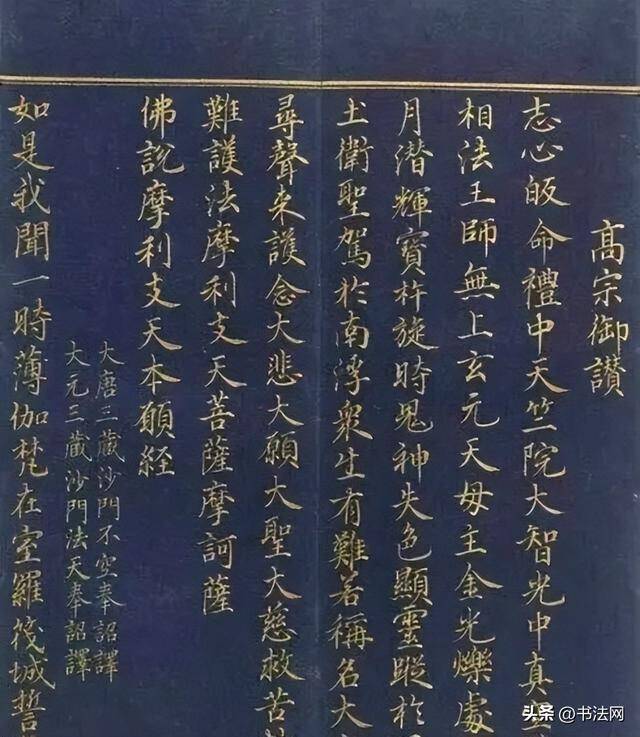 高宗御讃
志心皈命禮中天竺院大智光中真
相法王師無上玄元天母主金光爍處
月潛輝寶杵旋時鬼神失色顯靈蹤於
土衛聖駕於南浮衆生有難若稱名大
尋聲來護念大悲大願大聖大慈救苦
難護法摩利支天菩薩摩訶薩
佛說摩利支天本願経
大唐三藏沙門不空奉詔譯
大元三藏沙門法天奉詔譯
如是我聞一時薄伽梵在室羅筏城誓
头条 @书法网